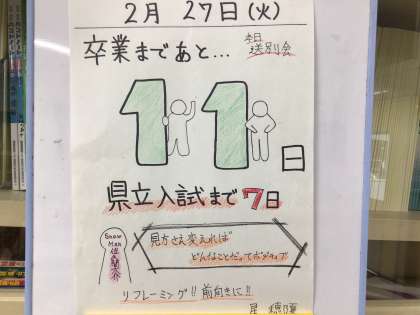 2月 27日(火)
卒業まであと…
本日
送別会
11日
県立入試まで7日
Snow
Man
佐久間大介
見方さえ変えれば
どんなことだってポジティブ
リフレーミング!!前向きに!!